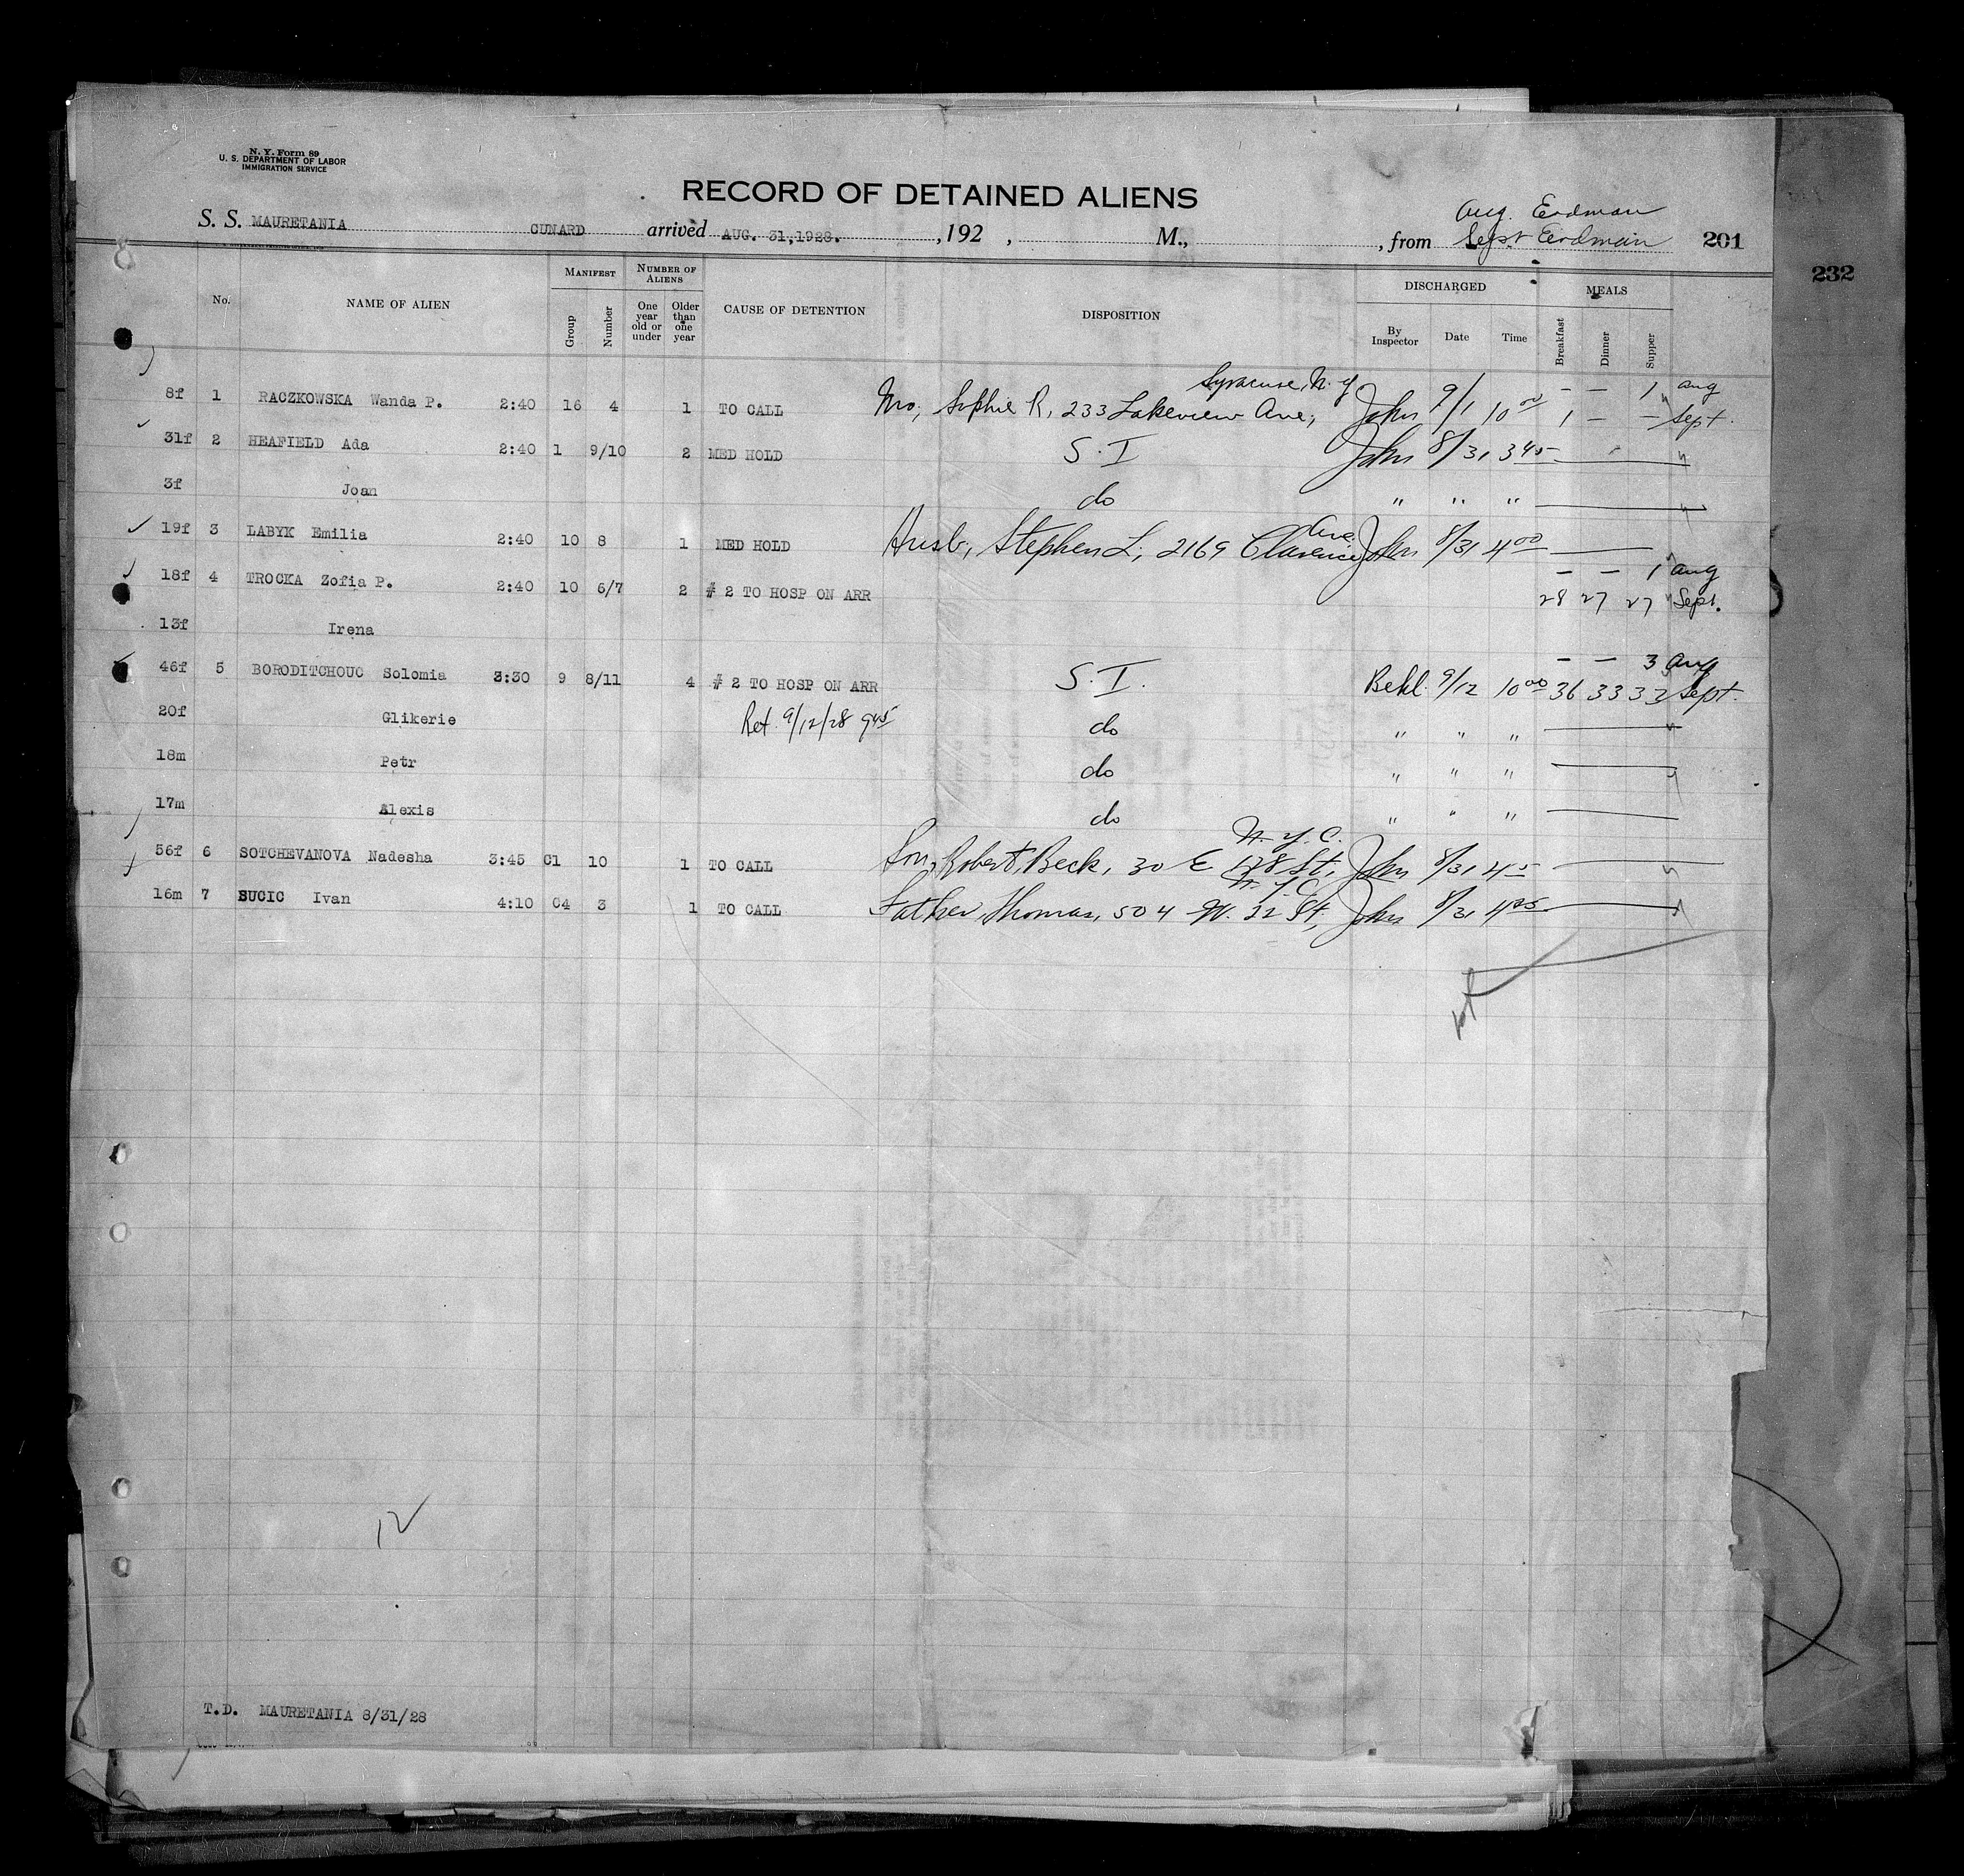 N. Y. Form 89
U. S. DEPARTMENT OF LABOR
IMMIGRATION SERVICE
RECORD OF DETAINED ALIENS
Aug. Erdman
S. S. MAURETANIA CUNARD arrived AUG. 31,1928. , 192 , M., , from Sept Erdman 201
232
No. NAME OF ALIEN MANIFEST NUMBER OF ALIENS CAUSE OF DETENTION DISPOSITION DISCHARGED MEALS
Group Number One year old or under Older than one year By Inspector Date Time Breakfast Dinner Supper
Syracuse, N. Y — — 1 Aug
8f 1 RACZKOWSKA Wanda P. 2:40 16 4 1 TO CALL Mo; Sophie R, 233 Lakeview Ave, John 9/1 10 00 1 — — Sept.
31f 2 HEAFIELD Ada 2:40 1 9/10 2 MED HOLD S. I John 8/31 3 45 "
3f Joan do " " " "
Ave.
19f 3 LABYK Emilia 2:40 10 8 1 MED HOLD Husb, Stephen L, 2169 Clarence John 8/31 4 00 "
— — 1 Aug
18f 4 TROCKA Zofia P. 2:40 10 6/7 2 # 2 TO HOSP ON ARR 28 27 27 Sept.
13f Irena
— — 3 Aug
46f 5 BORODITCHOUC Solomia 3:30 9 8/11 4 # 2 TO HOSP ON ARR S. I. Bekl. 9/12 10 00 36 33 33 Sept.
20f Glikerie Ret. 9/12/28 9 45 do " " " "
18m Petr do " " " "
17m Alexis do " " "
N. Y. C.
56f 6 SOTCHEVANOVA Nadesha 3:45 C1 10 1 TO CALL Son, Robert, Beck, 30 E 128 St, John 8/31 4 "
N. Y. C
16m 7 SUCIC Ivan 4:10 C4 3 1 TO CALL Father Thomas, 504 W. 32 St, John 8/31 4 25 "
12
T.D. MAURETANIA 8/31/28